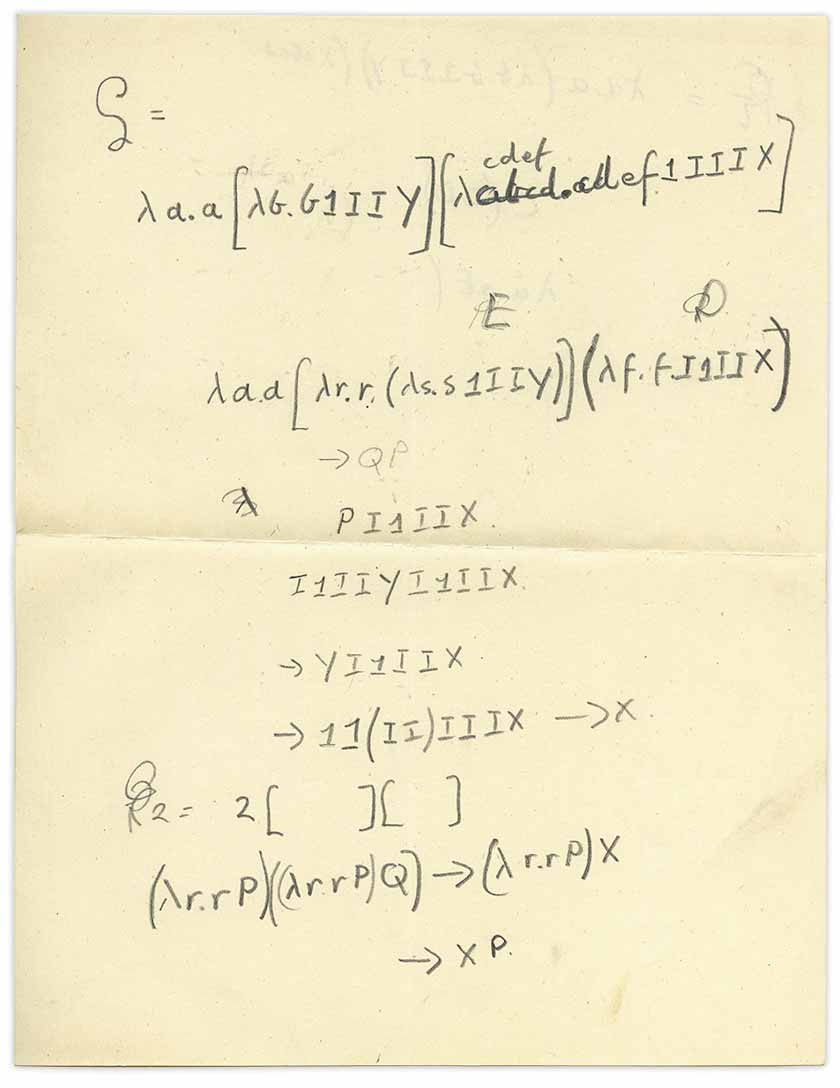 ζ =
cdef
λa.a[λb.b1IIY][λabcd.cdef1IIIX]
E D
λa.a[λr.r.(λs.s1IIY)](λf.f.I1IIX)
→ QP
PI1IIX.
I1IIYI1IIX.
→ YI1IIX
→ 11(II)IIIX → X.
2 = 2[ ][ ]
(λr.rP)((λr.rP)Q) → (λr.rP)X
→ XP.